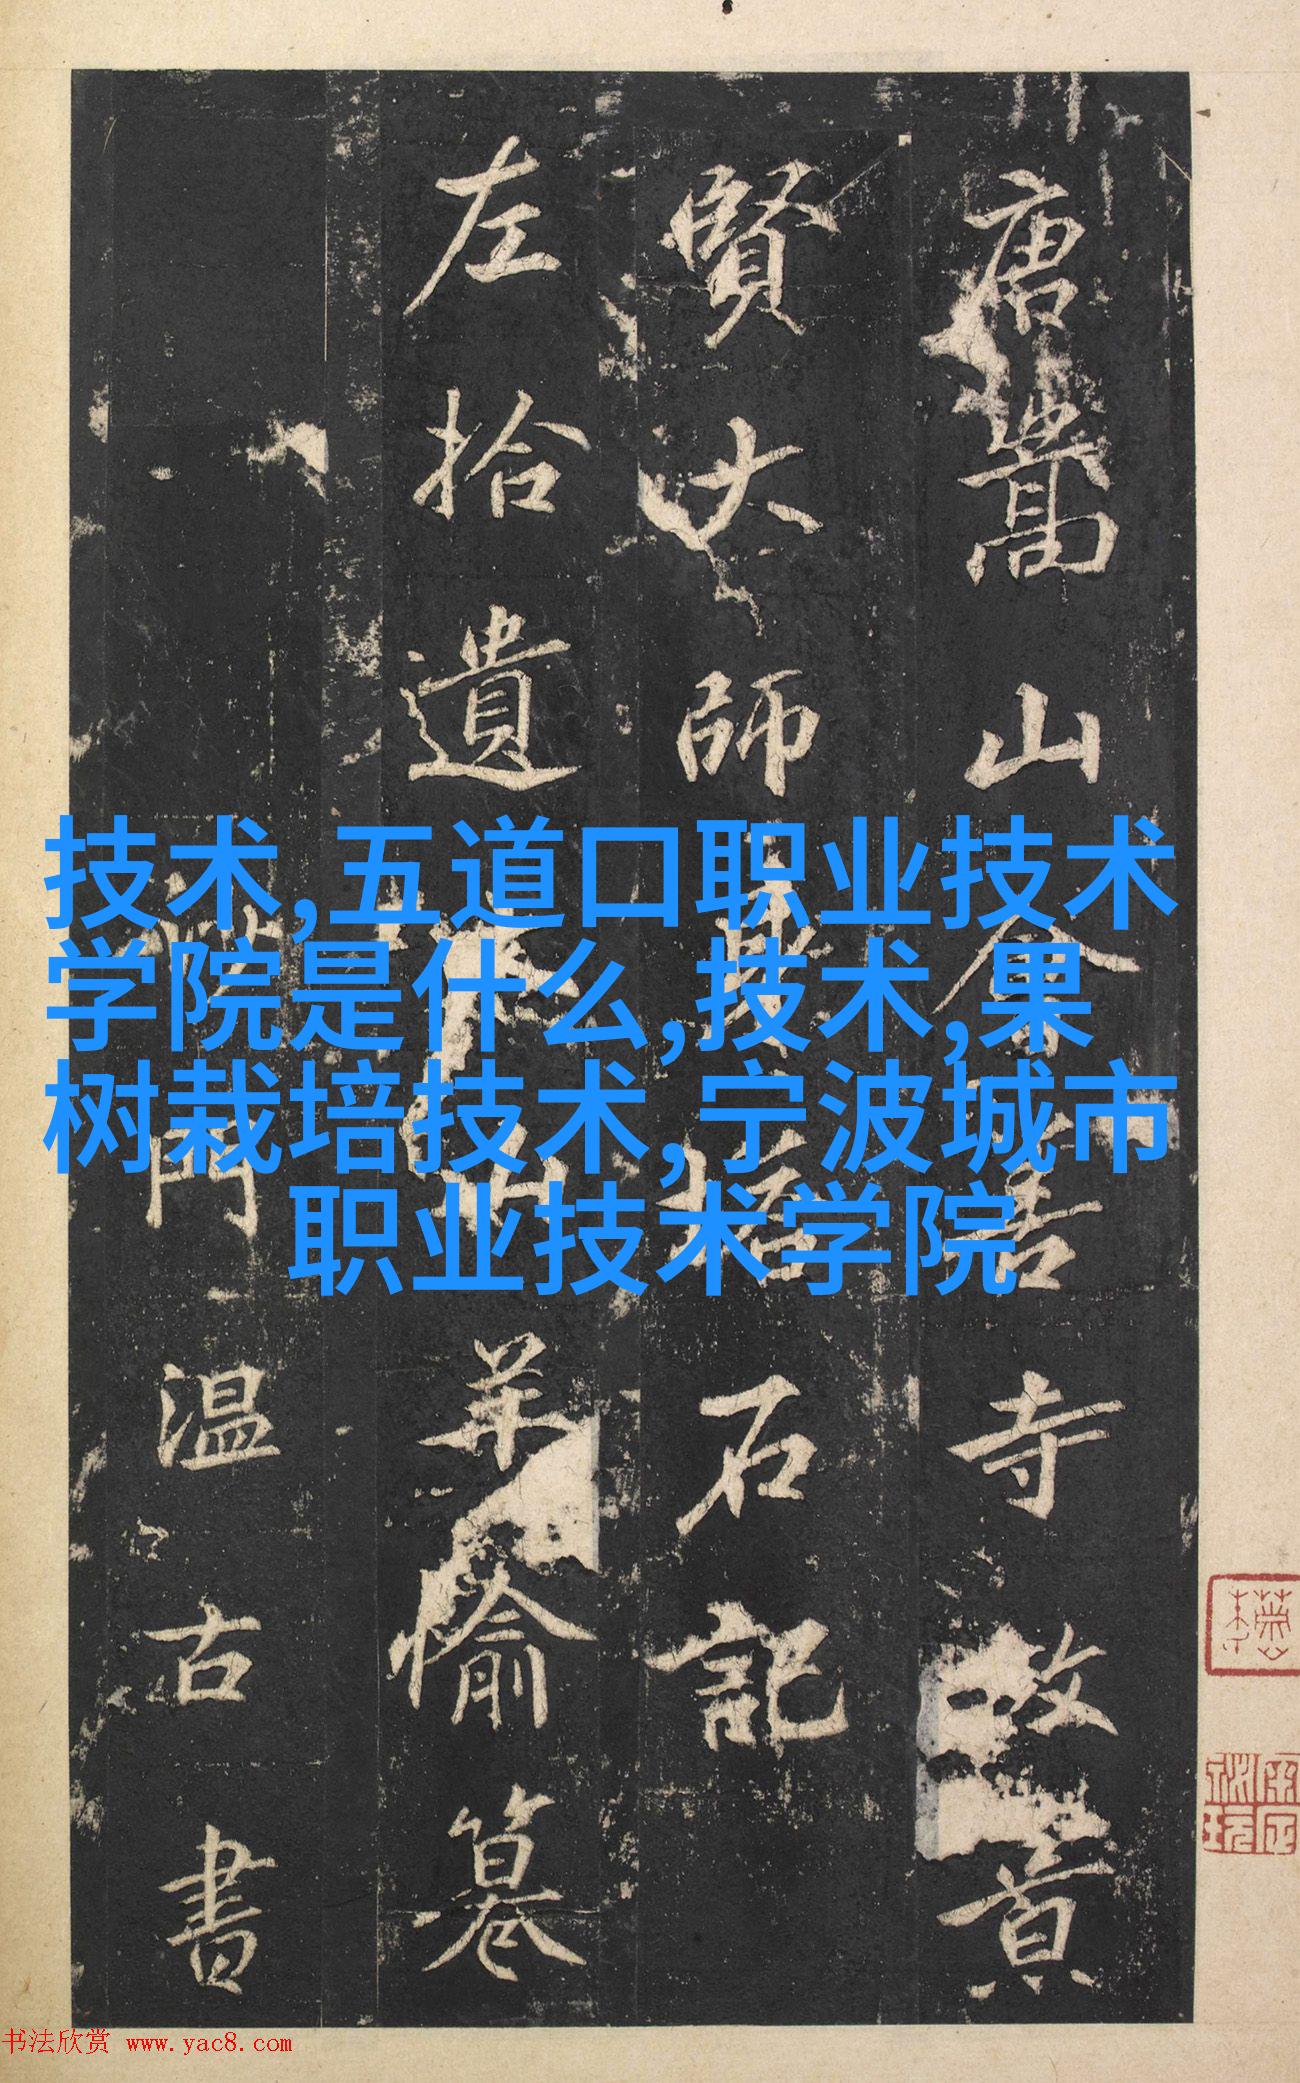 唐嵩山會善寺故景
賢大師身塔石記
左拾遺羊愉纂
沙門溫古書
技术,五道口职业技术
学院是什么,技术,果
树栽培技术,宁波城市
职业技术学院
书法欣赏 www.yac8.com